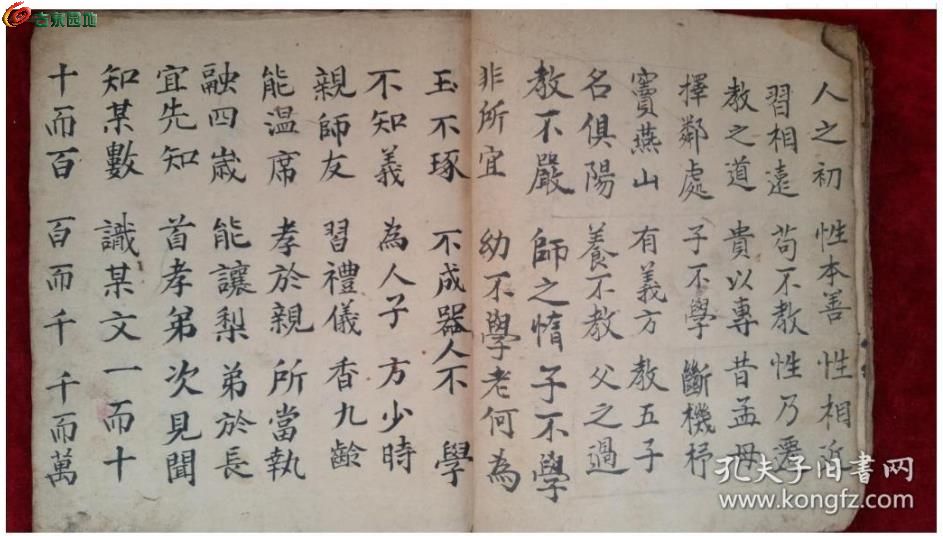 古泉园地
人之初 性本善 性相近
習相遠 苟不教 性乃遷
教之道 貴以專 昔孟母
擇鄰處 子不學 斷機杼
竇燕山 有義方 教五子
名俱陽 養不教 父之過
教不嚴 師之惰 子不學
非所宜 幼不學 老何為
玉不琢 不成器 人不學
不知義 為人子 方少時
親師友 習禮儀 香九齡
能温席 孝於親 所當執
融四歲 能讓梨 弟於長
宜先知 首孝弟 次見聞
知某數 識某文 一而十
十而百 百而千 千而萬
孔夫子旧书网
www.kongfz.com